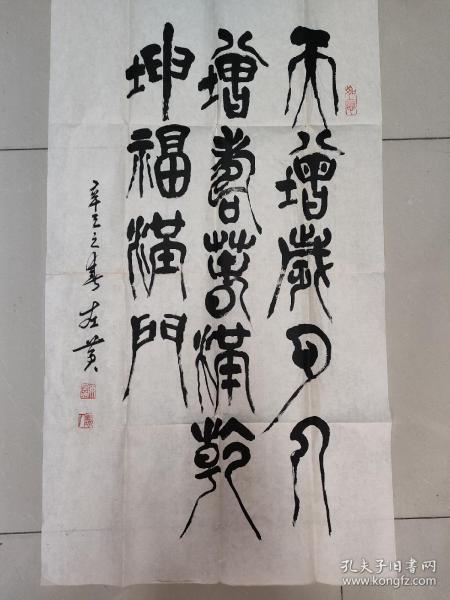 天增歲月人
增壽春滿乾
坤福滿門
之春左黄
孔夫子旧书网
www.kongfz.com